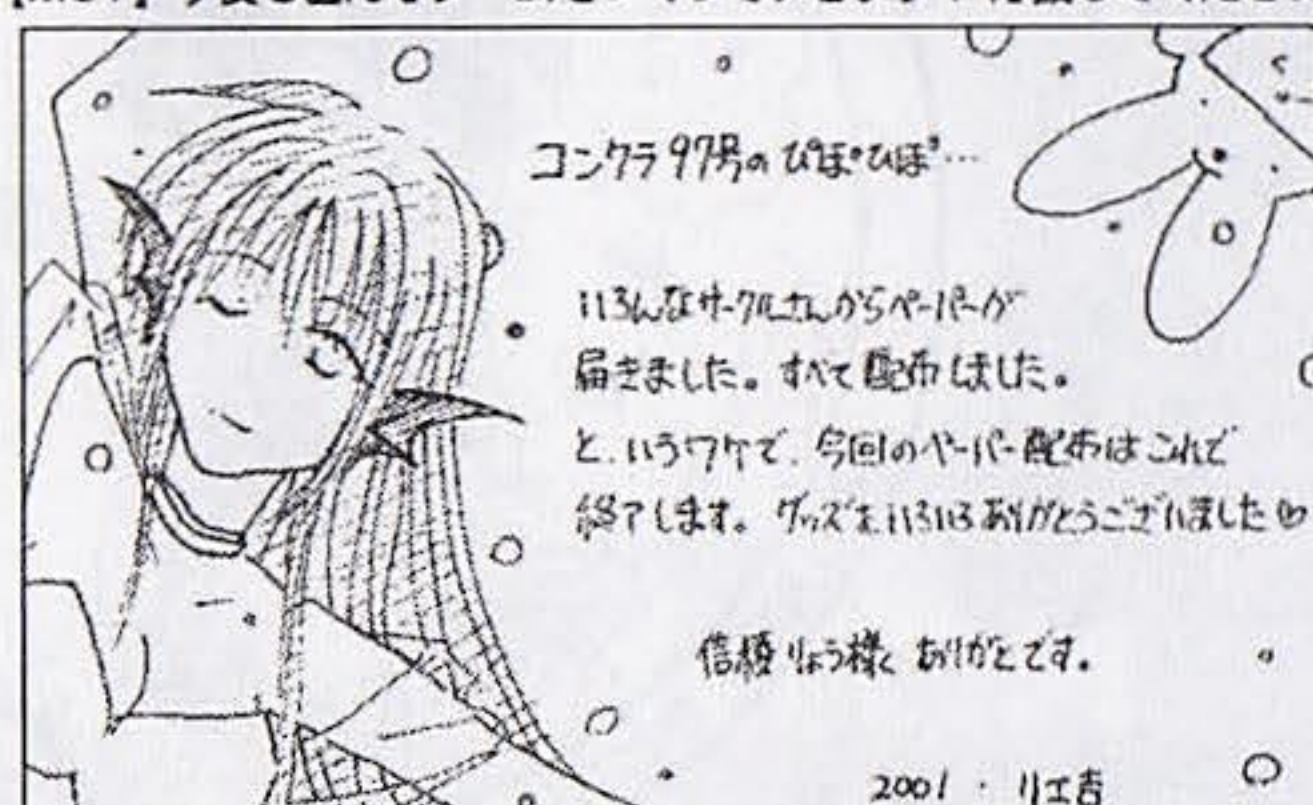 コンクラ97号の ぴぽぴぽ…
いろんなサークルさんからペーパーが
届きました。すべて配布しました。
と、いうワケで、今回のペーパー配布はこれで
終了します。グッズをいろいろありがとうございました♡
りょう様、ありがとです。
2001・リエ吉